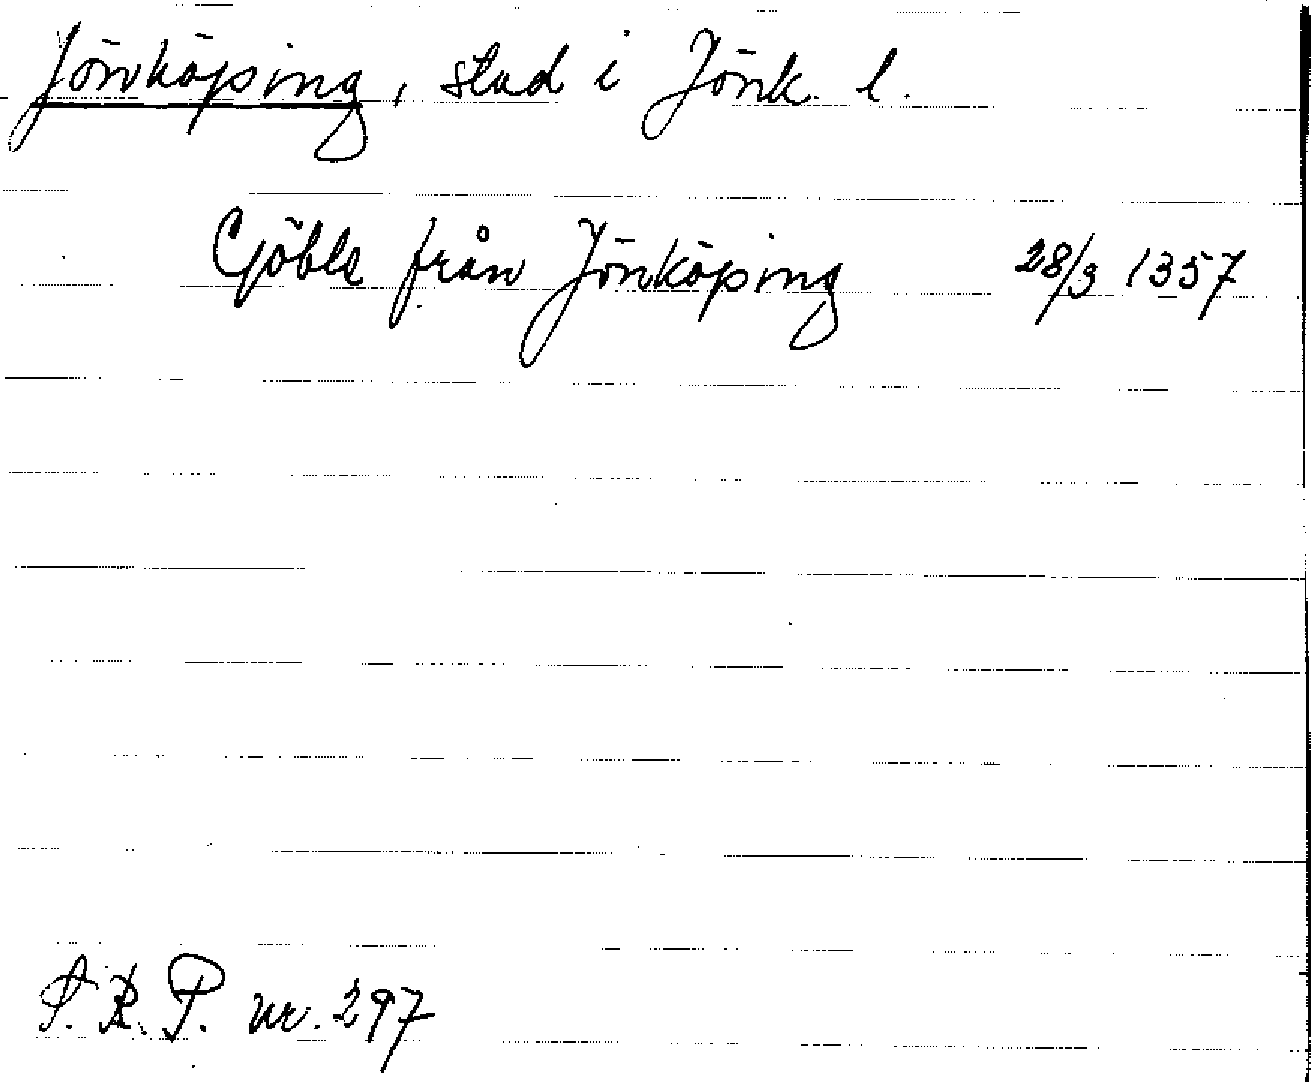 Jönköping, stad i Jönk. l.
Göbla från Jönköping 28/3 1357
S.R.P. nr. 297